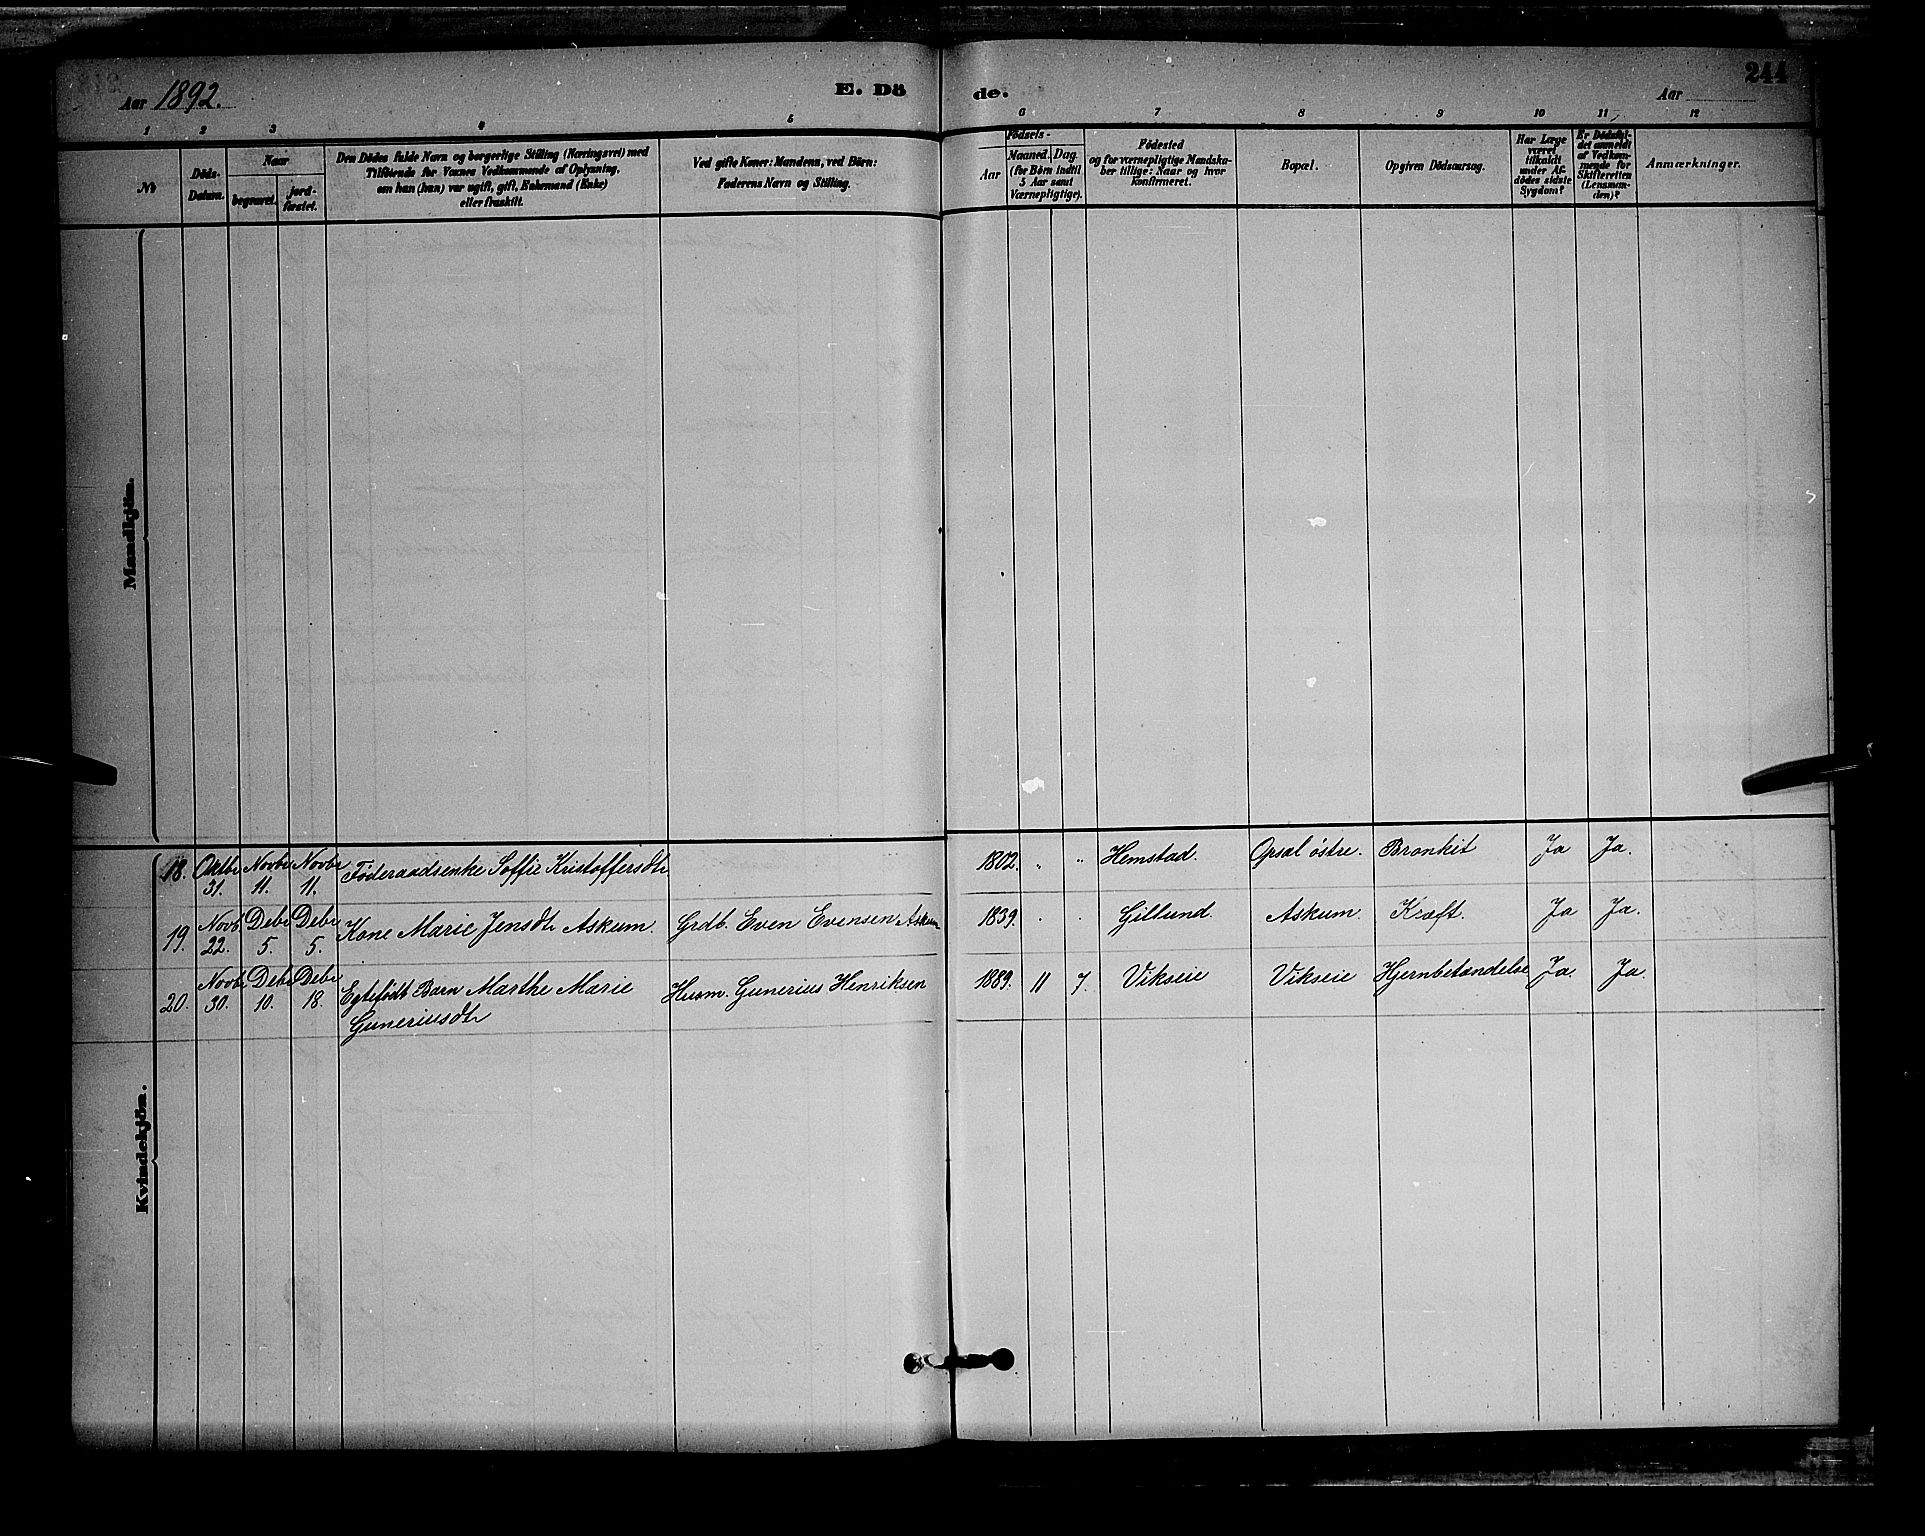 244
Aar 1892.
E. Dö
de.
Aar
1 2 3 4 5 6 7 8 9 10 11 12
№
Döds-Datum.
Naar
begravet.
jord-fæstet.
Den Dödes fulde Navn og borgerlige Stilling (Næringsvei) med
Tilföiende for Voxnes Vedkommende af Oplysning,
om han (hun) var ugift, gift, Enkemand (Enke)
eller fraskilt.
Ved gifte Koner: Mandens, ved Börn:
Faderens Navn og Stilling.
Födsels-
Aar
Maaned.
Dag.
(for Börn indtil
5 Aar samt
Værnepligtige).
Födested
og for værnepligtige Mandska-
ber tillige: Naar og hvor
konfirmeret.
Bopæl.
Opgiven Dödsaarsag.
Har Læge
været
tilkaldt
under Af-
dödes sidste
Sygdom?
Er Dödsfal-
det anmeldt
af Vedkom-
mende for
Skifteretten
(Lensman-
den)?
Anmærkninger.
Mandkjön.
18. Oktbr 31. Novbr 11. Novbr 11. Föderaadsenke Soffie Kristoffersdtr 1802. " " Hemstad. Opsal östre. Bronkit Ja Ja.
19. Novb. 22. Debr 5. Debr 5. Kone Marie Jensdtr Askum. Grdb. Even Evensen Askum 1839. . . Gillund. Askum. Kræft. Ja Ja.
20. Novbr 30. Debr 10. Debr 18. Egtefödt Barn Marthe Marie Husm. Gunerius Henriksen 1889. 11 7. Vikseie Vikseie Hjernbetændelse Ja. Ja.
Guneriusdtr
Kvindekjön.